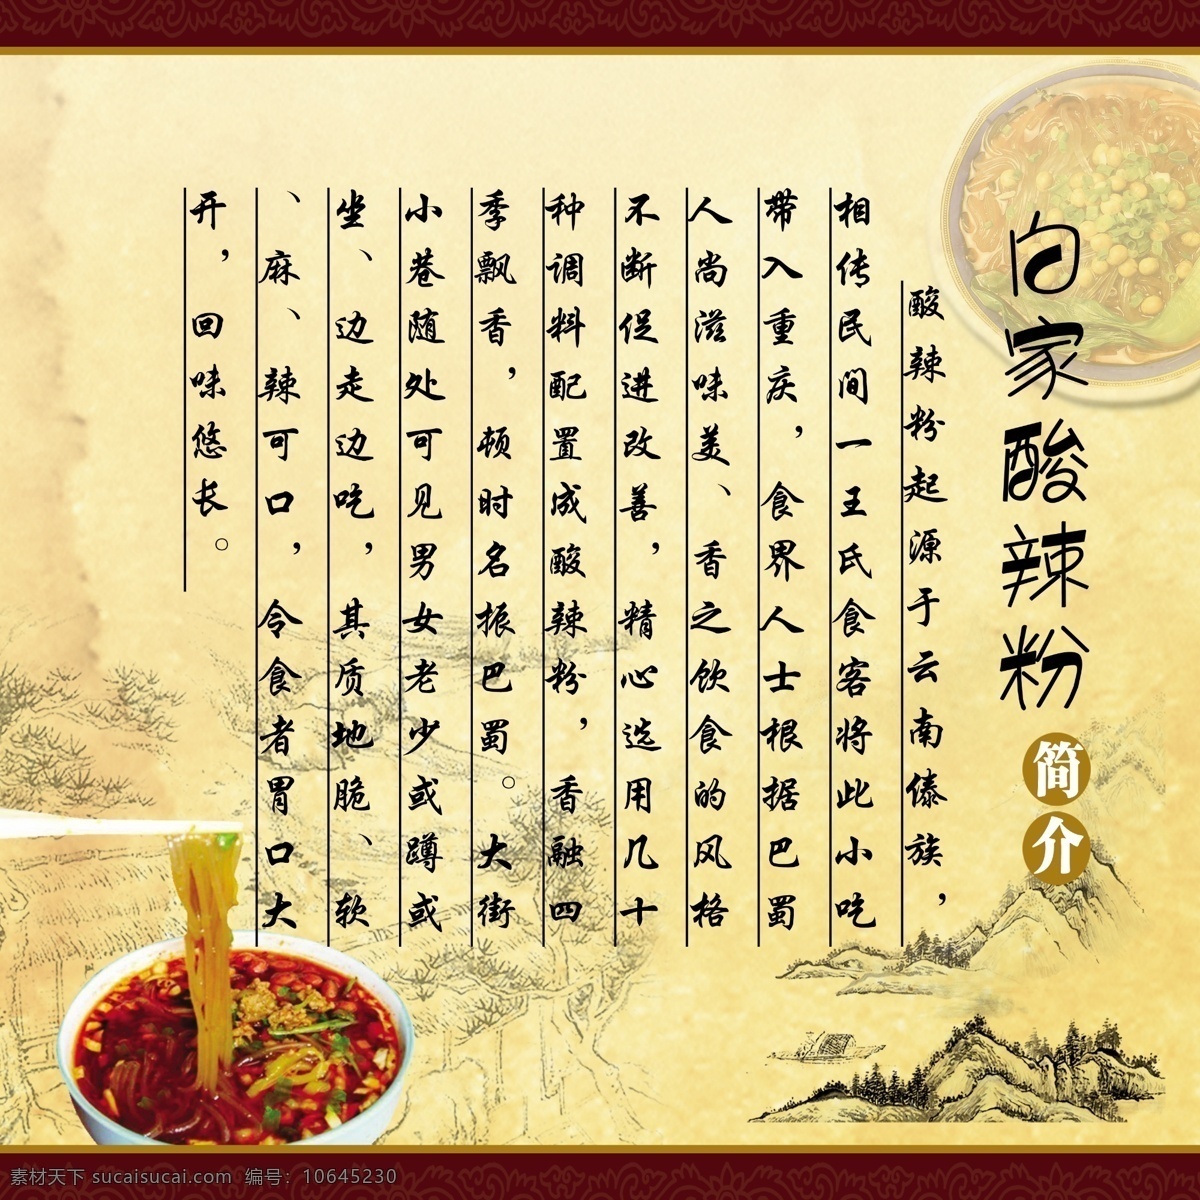 向家酸辣粉
简介
酸辣粉起源于云南傣族，
相传民间一王氏食客将此小吃
带入重庆，食界人士根据巴蜀
人尚滋味美、香之饮食的风格
不断促进改善，精心选用几十
种调料配置成酸辣粉，香融四
季飘香，顿时名振巴蜀。大街
小巷随处可见男女老少或蹲或
坐、边走边吃，其质地脆、软
、麻、辣可口，令食者胃口大
开，回味悠长。
素材天下 sucaisucai.com 编号：10645230